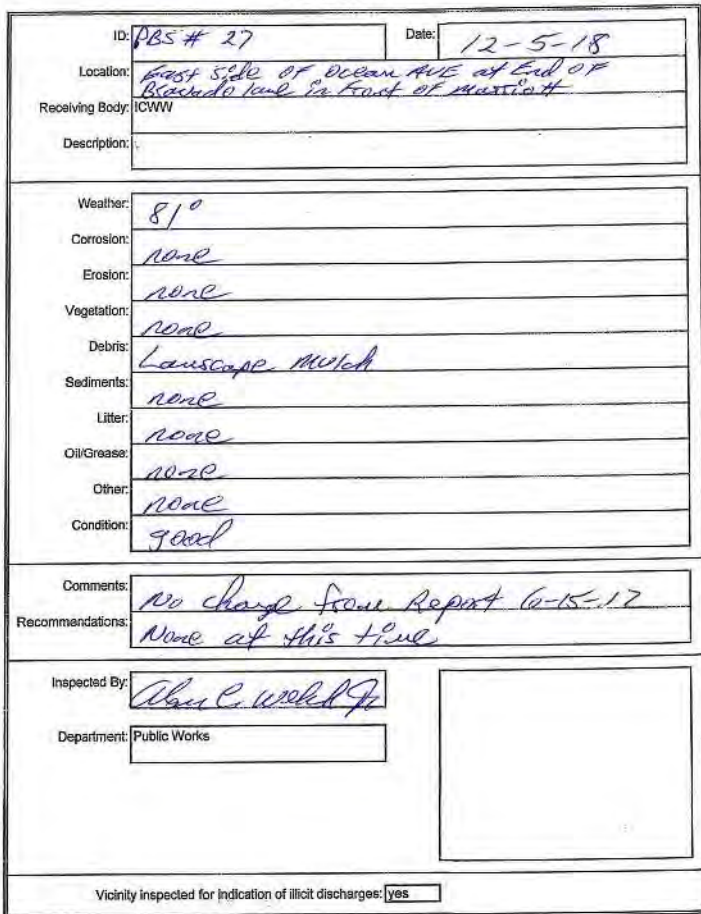 ID: PBS # 27 Date: 12-5-18
Location: East side OF Ocean AVE at End OF
Bravado lane in Front of Marriott
Receiving Body: ICWW
Description:
Weather: 81°
Corrosion: none
Erosion: none
Vegetation: none
Debris: Lanscape mulch
Sediments: none
Litter: none
Oil/Grease: none
Other: none
Condition: good
Comments: No change from Report 6-15-17
Recommendations: None at this time
Inspected By: Alan C. Welch Jr
Department: Public Works
Vicinity inspected for indication of illicit discharges: yes